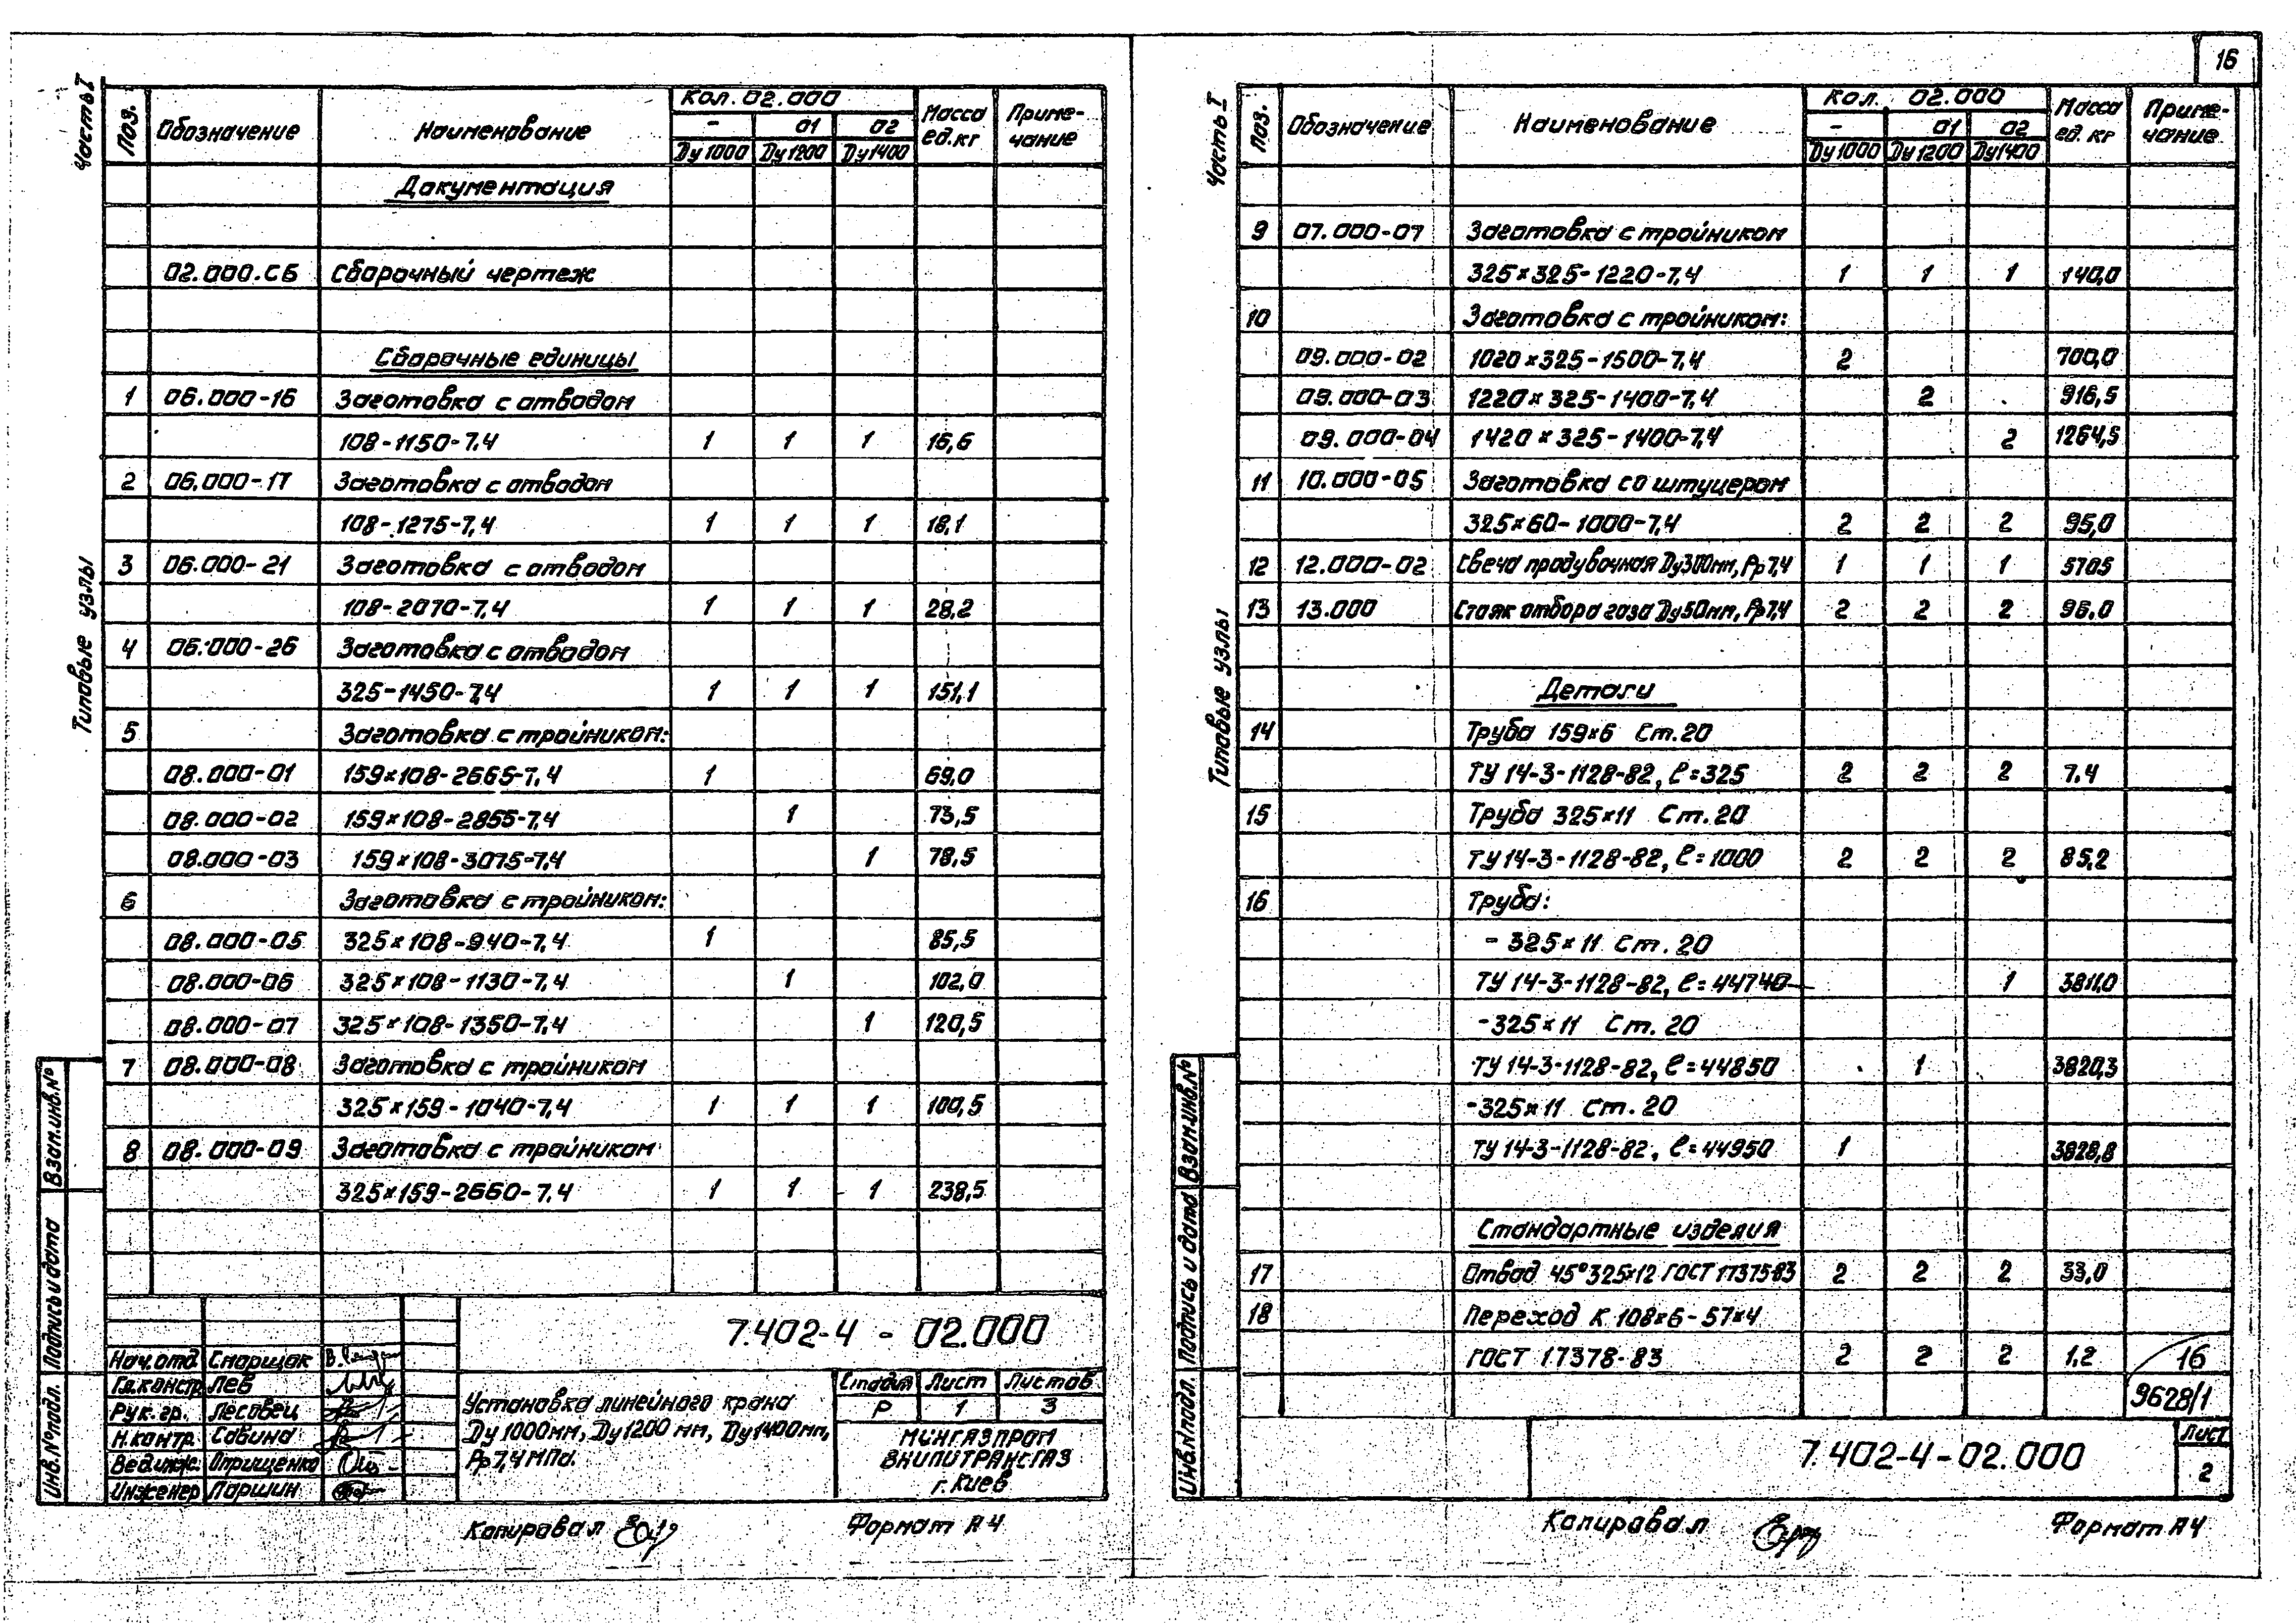 Часть I
Типовые узлы
Поз. Обозначение Наименование Кол. 02.000 Масса ед.кг Приме-чание
- 01 02
Ду1000 Ду1200 Ду1400
Документация
02.000.СБ Сборочный чертеж
Сборочные единицы
1 06.000-16 Заготовка с отводом
108-1150-7,4 1 1 1 16,6
2 06.000-17 Заготовка с отводом
108-1275-7,4 1 1 1 18,1
3 06.000-21 Заготовка с отводом
108-2070-7,4 1 1 1 28,2
4 06.000-26 Заготовка с отводом
325-1450-7,4 1 1 1 151,1
5 Заготовка с тройником:
08.000-01 159×108-2665-7,4 1 69,0
08.000-02 159×108-2855-7,4 1 73,5
08.000-03 159×108-3075-7,4 1 78,5
6 Заготовка с тройником:
08.000-05 325×108-940-7,4 1 85,5
08.000-06 325×108-1130-7,4 1 102,0
08.000-07 325×108-1350-7,4 1 120,5
7 08.000-08 Заготовка с тройником
325×159-1040-7,4 1 1 1 100,5
8 08.000-09 Заготовка с тройником
325×159-2660-7,4 1 1 1 238,5
Взам.инв.№
Подпись и дата
Инв.№подл.
7.402-4-02.000
Нач.отд. Спорщак
Гл.констр. Лев
Рук.гр. Лесовец
Н.контр. Савина
Вед.инж. Оприщенко
Инженер Паршин
Установка линейного крана
Ду1000мм, Ду1200 мм, Ду1400мм,
Рр7,4 МПа.
Стадия Лист Листов
Р 1 3
МИНГАЗПРОМ
ВНИПИТРАНСГАЗ
г. Киев
Копировал Формат А4
16
Часть I
Типовые узлы
Поз. Обозначение Наименование Кол. 02.000 Масса ед.кг Приме-чание
- 01 02
Ду1000 Ду1200 Ду1400
9 07.000-07 Заготовка с тройником
325×325-1220-7,4 1 1 1 140,0
10 Заготовка с тройником:
09.000-02 1020×325-1500-7,4 2 700,0
09.000-03 1220×325-1400-7,4 2 916,5
09.000-04 1420×325-1400-7,4 2 1264,5
11 10.000-05 Заготовка со штуцером
325×60-1000-7,4 2 2 2 95,0
12 12.000-02 Свеча продувочная Ду300мм, Рр7,4 1 1 1 570,5
13 13.000 Стояк отбора газа Ду50мм, Рр7,4 2 2 2 96,0
Детали
14 Труба 159×6 Ст.20
ТУ 14-3-1128-82, ℓ=325 2 2 2 7,4
15 Труба 325×11 Ст.20
ТУ 14-3-1128-82, ℓ=1000 2 2 2 85,2
16 Труба:
- 325×11 Ст.20
ТУ 14-3-1128-82, ℓ=44740 1 3811,0
-325×11 Ст.20
ТУ 14-3-1128-82, ℓ=44850 1 3820,3
-325×11 Ст.20
ТУ 14-3-1128-82, ℓ=44950 1 3828,8
Стандартные изделия
17 Отвод 45° 325×12 ГОСТ 17375-83 2 2 2 33,0
18 Переход К 108×6-57×4
ГОСТ 17378-83 2 2 2 1,2
16
9628/1
Взам.инв.№
Подпись и дата
Инв.№подл.
7.402-4-02.000
Лист
2
Копировал Формат А4